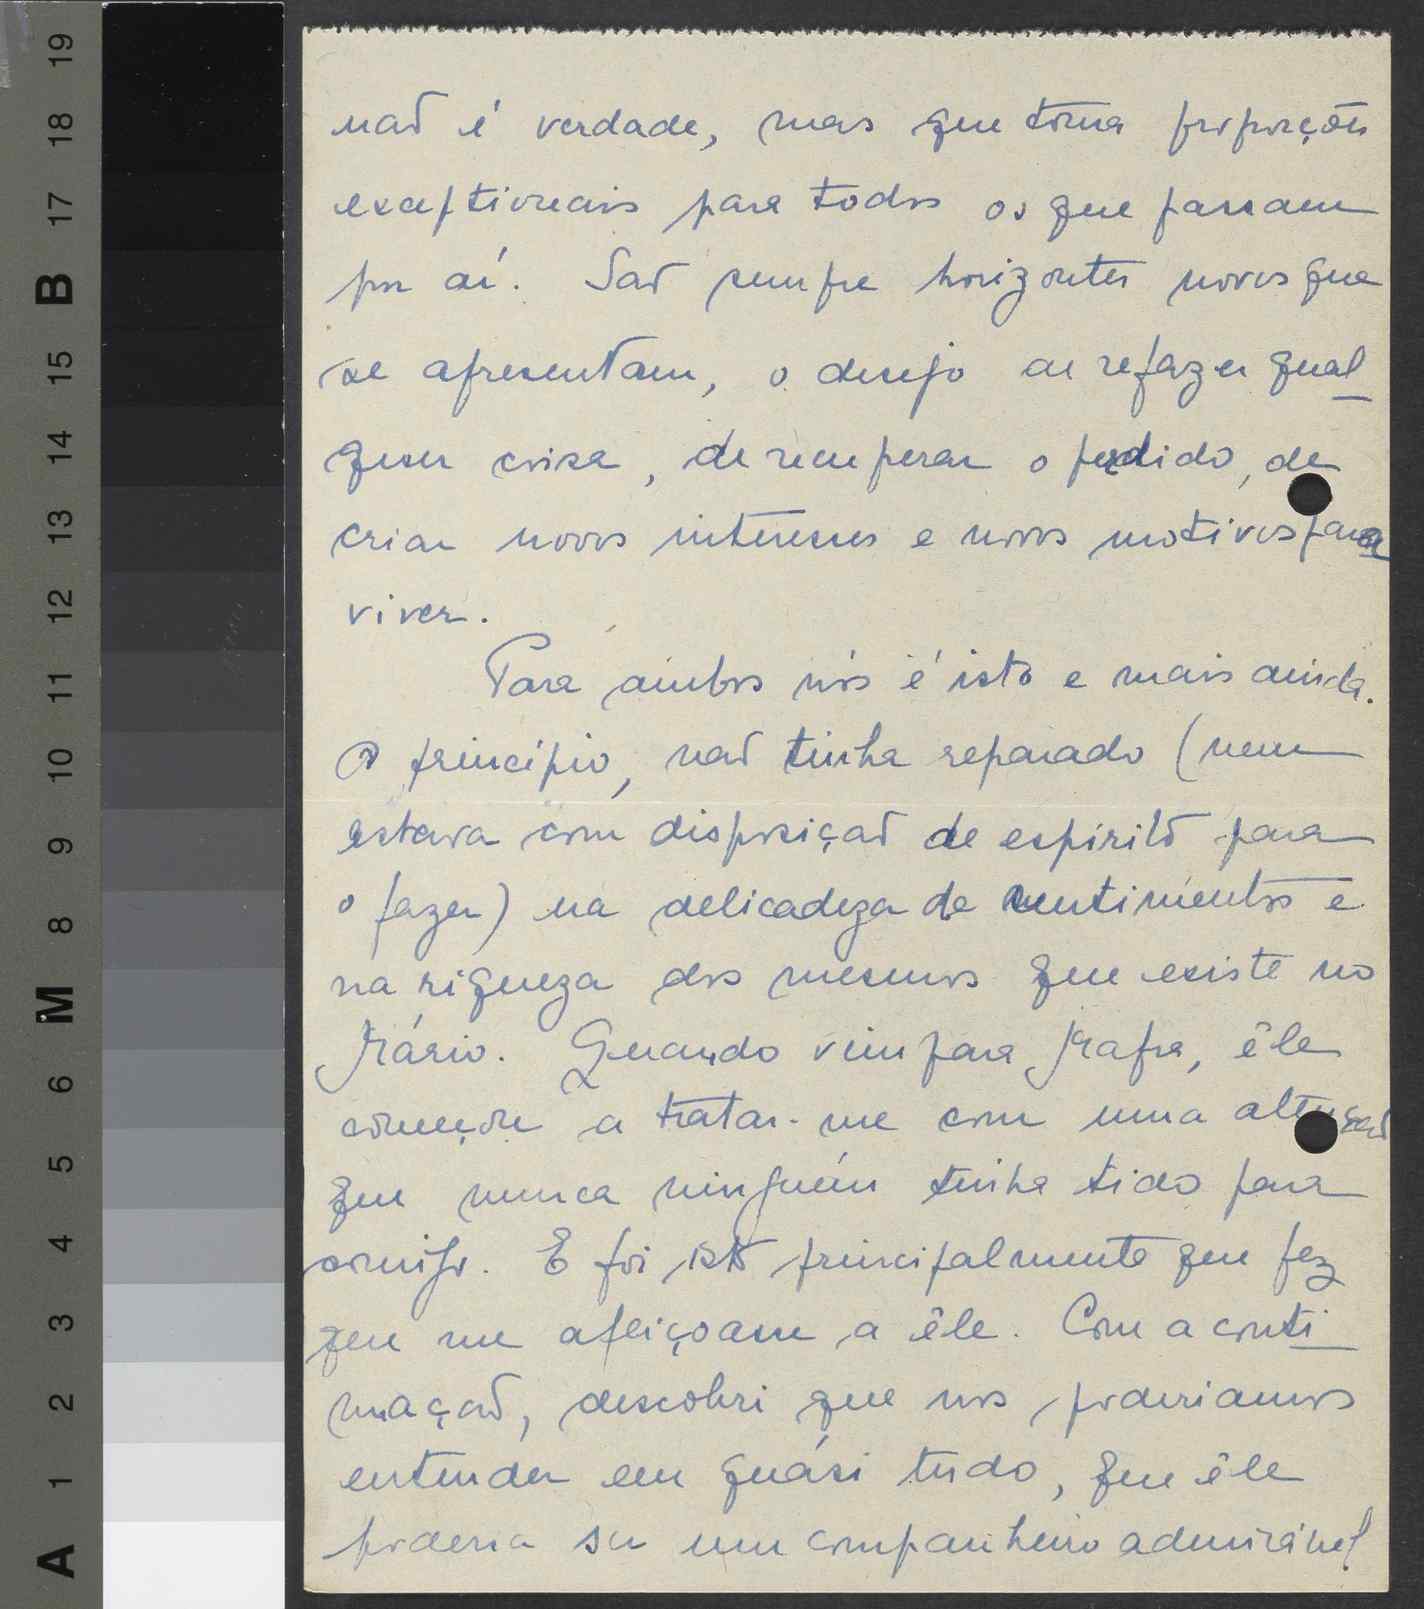 não é verdade, mas que toma proporções
excepcionais para todos os que passam
por aí. São sempre horizontes novos que
se apresentam, o desejo de refazer qual-
quer coisa, de recuperar o perdido, de
criar novos interesses e novos motivos para
viver.
Para ambos nós é isto e mais ainda.
Ao princípio, não tinha reparado (nem
estava com disposição de espírito para
o fazer) na delicadeza de sentimentos e
na riqueza dos mesmos que existe no
Mário. Quando vim para Mafra, êle
começou a tratar-me com uma
que nunca ninguém tinha tido para
comigo. E foi isto principalmente que fez
que me afeiçoasse a êle. Com a conti-
nuação, descobri que nos poderiamos
entender em quási tudo, que êle
poderia ser um companheiro admirável
A 1 2 3 4 5 6 M 8 9 10 11 12 13 14 15 B 17 18 19